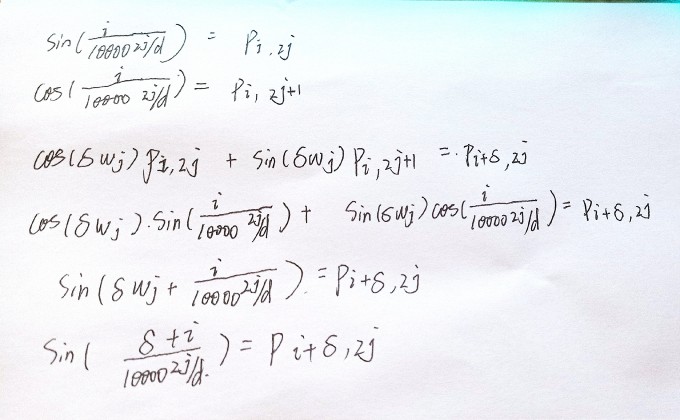 sin(i/10000^2j/d) = Pi,2j
cos(i/10000^2j/d) = Pi,2j+1
cos(δwj)Pi,2j + sin(δwj)Pi,2j+1 = Pi+δ,2j
cos(δwj)·sin(i/10000^2j/d) + sin(δwj)cos(i/10000^2j/d) = Pi+δ,2j
sin(δwj + i/10000^2j/d) = Pi+δ,2j
sin(δ+i/10000^2j/d.) = Pi+δ,2j